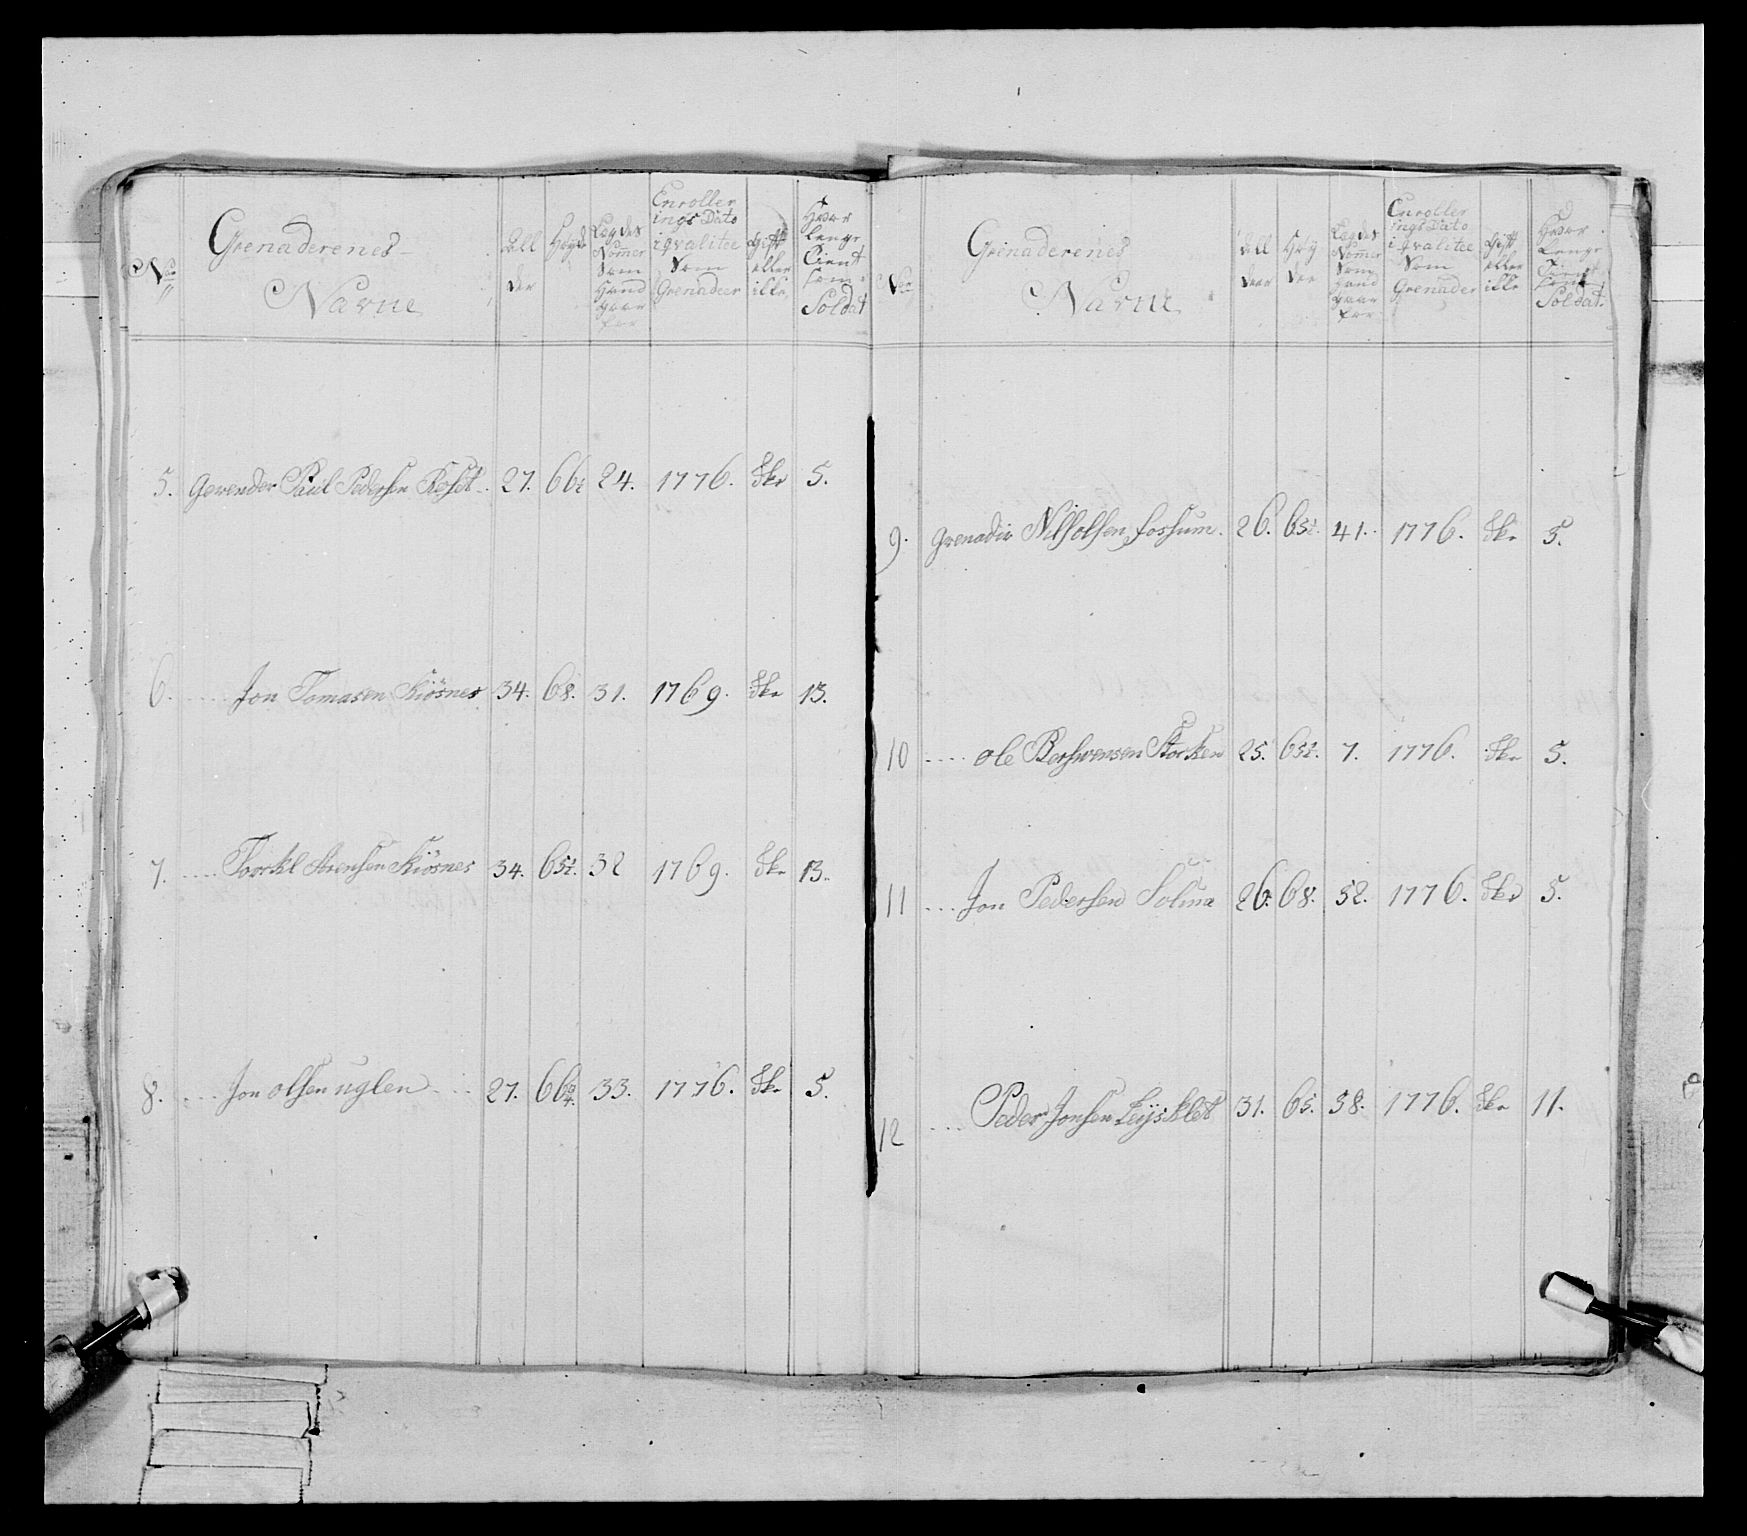 No
Grenaderenes
Navne
All
der
Høyde
Legdes
Nomer
Som
Hand
gaar
for
Enroller
ings Dato
i qvalitee
Som
Grenadeer
Gift
eller
ikke
Hvor
lenge
Tient
som
Soldat
5. Grenader Paul Pedersen Roset. 27. 66½ 24. 1776. Ekr 5.
6. .... Jon Tomasen Kiösnes 34. 68. 31. 1769. Ekr 13.
7. .... Torkel Arensen Kiösnes 34. 65½. 32 1769. Ekr 13.
8. .... Jon olsen uglen .... 27. 66¾. 33. 1776. Ekr 5.
No
Grenaderenes
Navne
Legdes
Nomer
Som
Hand
gaar
for
Enroller
ings Dato
i qvalitee
Som
Grenader
Gift
eller
ikke
Hvor
lenge
Tient
som
Soldat.
9. Grenadir Nils olsen fossum. 26. 65½. 41. 1776. Ekr 5.
10 .... ole Storken 25. 65½. 7. 1776. Ekr 5.
11 .... Jon Pedersen Solum 26. 68. 52. 1776. Ekr 5.
12 .... Peder Jonsen 31. 65. 58. 1776. Ekr 11.